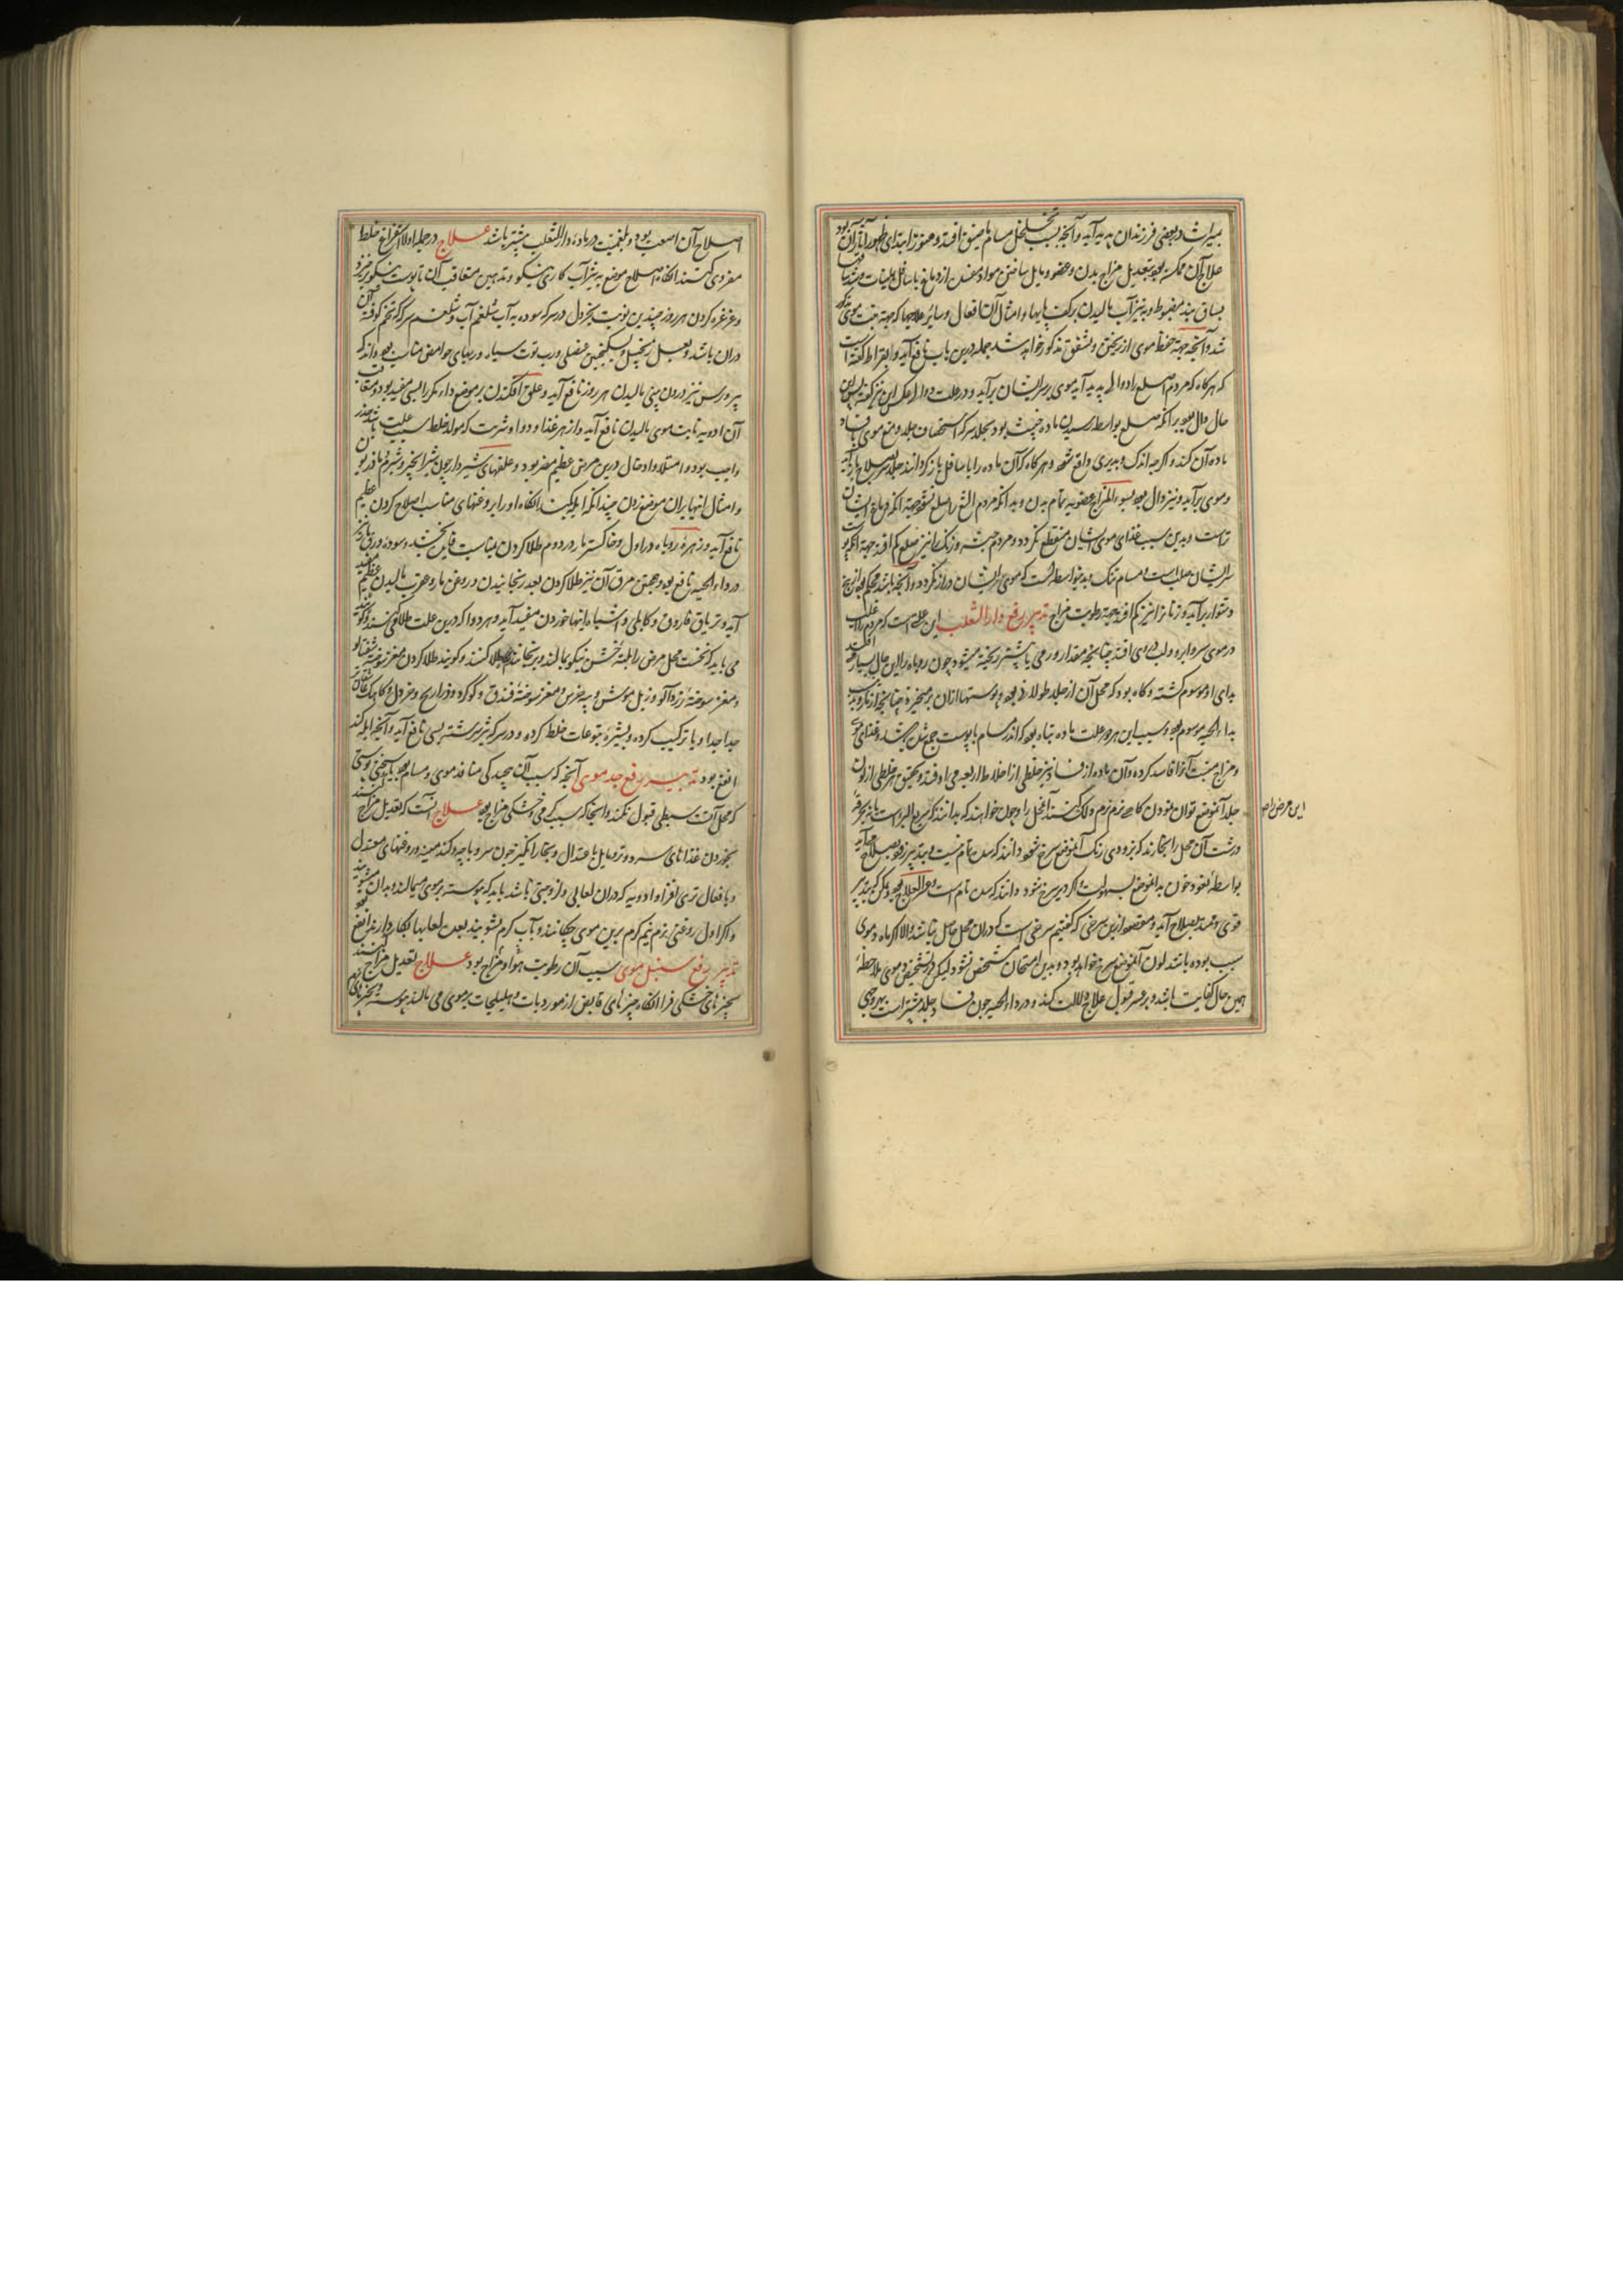 بمیراث در بعضی فرزندان پدید آید و آنچه بسبب تخلخل مسام یا ضیق افتد و هنوز ابتدای ظهور آثار آن بود
علاج آن ممکن بود بتعدیل مزاج بدن و عضو و مایل ساختن مواد عفن از دماغ باسافل بملینات و
بساق بستن مضبوط و به تیزآب مالیدن بر کف پایها و امثال آن افعال و سایر علاجها که جهة نبت موی مذکور
شد و آنچه جهة حفظ موی از ریختن و تشقق مذکور خواهد شد جمله درین باب نافع آید و ابقراط گفته است
که هرگاه که مردم اصلع را دوالی پدید آید موی بر سر ایشان برآید و در علت دوالی عکس این نیز گفته
حال دال بود بر آنکه صلع بواسطه رسیدن ماده خبیث بود بجلد سر که استحصاف جلد و منع موی یا فساد
ماده آن کند و اگرچه اندک و بدیری واقع شود و هرگاه که آن ماده را باسافل باز گردانند جلد سر بصلاح باز آید
و موی برآید و نیز دال بود بسوء المزاج عضو نه تمام بدن و بدانکه مردم الثغ را صلع نشود جهة آنکه دماغ ایشان
تر است و بدین سبب غذای موی ایشان منقطع نگردد و مردم حبشه و زنگ را نیز صلع کم افتد جهة آنکه پوست
سر ایشان صلب است و مسام تنگ و بدین واسطه است که موی سر ایشان دراز نگردد و آنچه باشد محکم بود از بیخ
و دشوار برآید و زنان را نیز کم افتد جهة رطوبت مزاج تدبیر رفع داء الثعلب این علتی است که مردم را اغلب
در موی سر و ابرو و لب و روی افتد چنانچه مقدار درمی یا بیشتر ریخته میشود چون روباه را این حال بسیار افتد
بدای او موسوم گشته و گاه بود که محل آن از جلد طولانی بود و پوستها از آن برمیخیزد چنانچه از مار و بدین سبب
بداء الحیه موسوم بود و سبب این هر دو علت ماده تباه بود که اندر مسام یا پوست جمع شده باشد و غذای موی
و مزاج منبت آنرا فاسد کرده و آن ماده از فساد هر خلطی از اخلاط اربعه می افتد و تحقیق هر خلطی از لون
جلد آنموضع توان نمودن گاهی نرم نرم و دلک کنند آنمحل را و چون خواهند که بدانند که سریع البرء است یا نه بخرقه
درشت آن محل را بخارند که بزودی رنگ آنموضع سرخ شود دانند که بس تمام نیست و بتدبیر زود بصلاح آید
بواسطه نفوذ خون بدانموضع بسهولت و اگر دیر سرخ شود دانند که بس تام است و عسر العلاج بود و لیکن که بتدبیر
قوی و ممتد بصلاح آید و مقصود ازین سرخی که گفتیم سرخی است که در آن محل حاصل نباشد والا اگر ماده دموی
سبب بوده باشد لون آنموضع سرخ خواهد بود و بدین امتحان مشخص نشود لیکن در تشخیص دموی ملاحظه
همین حال کفایت باشد و بر عسر قبول علاج دلالت کند و در داء الحیه چون فساد جلد بیشتر است بهر وجهی
این مرض را
اصلاح آن اصعب بود و بلغمیت در ماده داء الثعلب بیشتر باشد علاج در جمله اولا استفراغ خلط
مفردی کنند آنگاه اصلاح موضع به تیزآب کاری نیکو و تدهین متعاقب آن تا پوست نیکو
و غرغره کردن هر روز چندین نوبت بخردل در سرکه سوده یه آب شلغم آب و شلغم سرکه که تخم کوفته آن
در آن باشد و بعسل زنجبیل و سکنجبین عنصلی و رب توت سیاه و ربهای حوامض مناسب بود و اندک
پیروزس نیز درون بینی مالیدن هر روز نافع آید و علق افکندن بر موضع داء مکرر البسی مفید بود و متعاقب
آن ادویه نابت موی مالیدن نافع آید و از هر غذا و دوا و شربت که مولد خلط سبب علت باشد حذر
واجب بود و امتلا و ادخال درین مرض عظیم مضر بود و علفهای شیردار چون شیر انجیر و شبرم و مازریون
و امثال اینها بر آن موضع زدن چندانکه آبله کند آنگاه او را بروغنهای مناسب اصلاح کردن عظیم
نافع آید و زهره روباه در اول و خاکستر مار در دوم طلا کردن بمناسبت فایده بخشد و سوده ورق
در داء الحیه نافع بود و همچنین مرق آن نیز طلا کردن بعد رنجانیدن و روغن مار و عقرب مالیدن عظیم مفید
آید و تریاق فاروق و کابلی و اشیاء اینها خوردن مفید آید و هر دوا که درین علت طلا می کنند
می باید که نخست محل مرض را بلته خشن نیکو بمالند و برنجانند پس طلا کنند و گویند طلا کردن مغز سوخته شفتالو
و مغز سوخته زردآلو و زبل موش و پیه خرس و مغز سوخته فندق و گوگرد و ذراریح و خردل
جدا جدا و یا ترکیب کرده و بشیره یتوعات خلط کرده و در سرکه تیز سرشته بسی نافع آید و آنچه آبله کند
انفع بود تدبیر رفع جعد موی آنچه که سبب آن پیچیدگی منافذ موی و مسام بود یا سختی پوستی
که محل آنست بسطی قبول نکند و آنجا که سبب گرمی و خشکی مزاج بود علاج آنست که تعدیل مزاج کنند
بخوردن غذاهای سرد و تر مایل باعتدال و بخارانگیز چون سر و پاچه و کدو و میوه و روغنهای معتدل
و با فعال تری افزا و ادویه که در آن لعابی و لزوجتی باشد باید که پیوسته بر موی میمالند و بدان میشویند
و اگر اول روغنی نرم نیم گرم برین موی چکانند و بآب گرم بشویند بعد لعابها بکار دارند انفع بود
تدبیر رفع سنبل موی سبب آن رطوبت هوا و مزاج بود علاج تعدیل مزاج کنند
بچیزهای خشکی فزا آنگاه چیزهای قابض از موردیات و هلیلجات بر موی می مالند پیوسته و بچیزهای